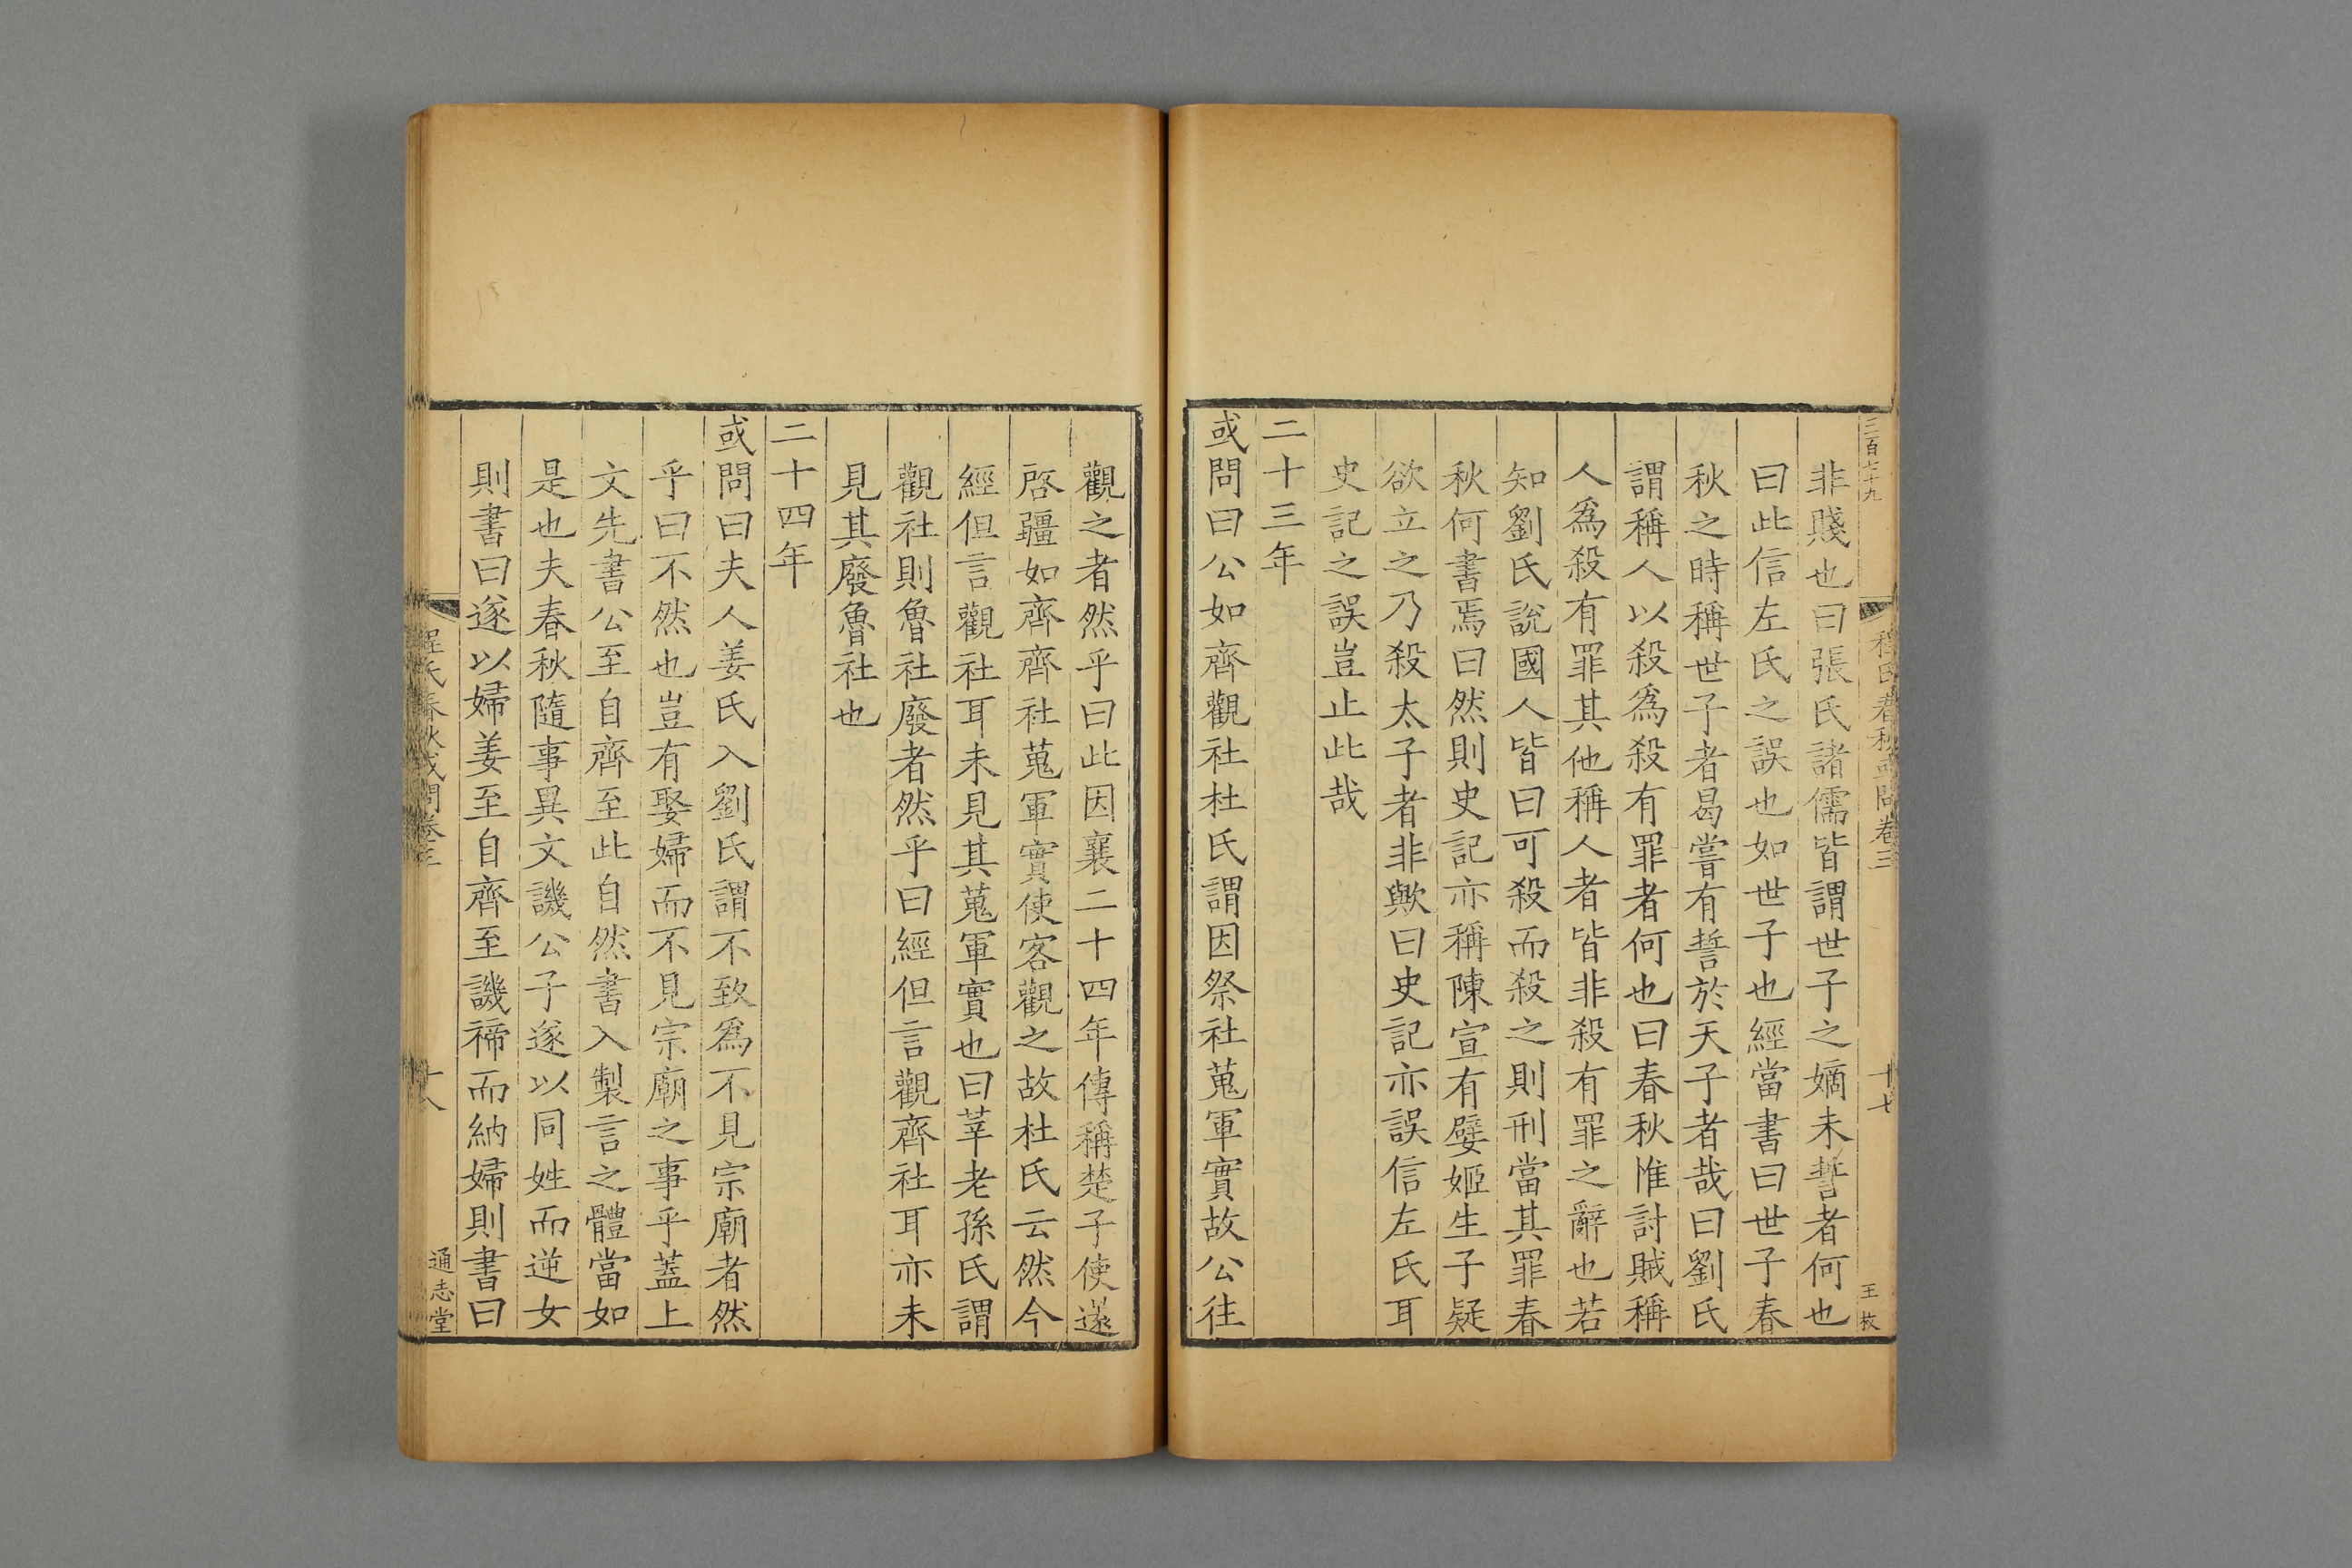 三百七十九
程氏春秋或問卷三
十七
王枚
非賤也曰張氏諸儒皆謂世子之嫡未誓者何也
曰此信左氏之誤也如世子也經當書曰世子春
秋之時稱世子者曷嘗有誓於天子者哉曰劉氏
謂稱人以殺爲殺有罪者何也曰春秋惟討賊稱
人爲殺有罪其他稱人者皆非殺有罪之辭也若
知劉氏說國人皆曰可殺而殺之則刑當其罪春
秋何書焉曰然則史記亦稱陳宣有嬖姬生子疑
欲立之乃殺太子者非歟曰史記亦誤信左氏耳
史記之誤豈止此哉
二十三年
或問曰公如齊觀社杜氏謂因祭社蒐軍實故公往
觀之者然乎曰此因襄二十四年傳稱楚子使薳
啓疆如齊齊社蒐軍實使客觀之故杜氏云然今
經但言觀社耳未見其蒐軍實也曰莘老孫氏謂
觀社則魯社廢者然乎曰經但言觀齊社耳亦未
見其廢魯社也
二十四年
或問曰夫人姜氏入劉氏謂不致爲不見宗廟者然
乎曰不然也豈有娶婦而不見宗廟之事乎蓋上
文先書公至自齊至此自然書入製言之體當如
是也夫春秋隨事異文譏公子遂以同姓而逆女
則書曰遂以婦姜至自齊至譏禘而納婦則書曰
程氏春秋或問卷三
十八
通志堂